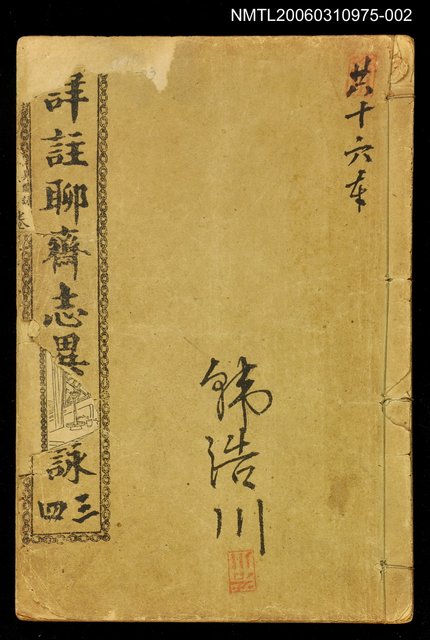 NMTL20060310975-002
共十六本
韩浩川
詳註聊齋志異
詠
三四